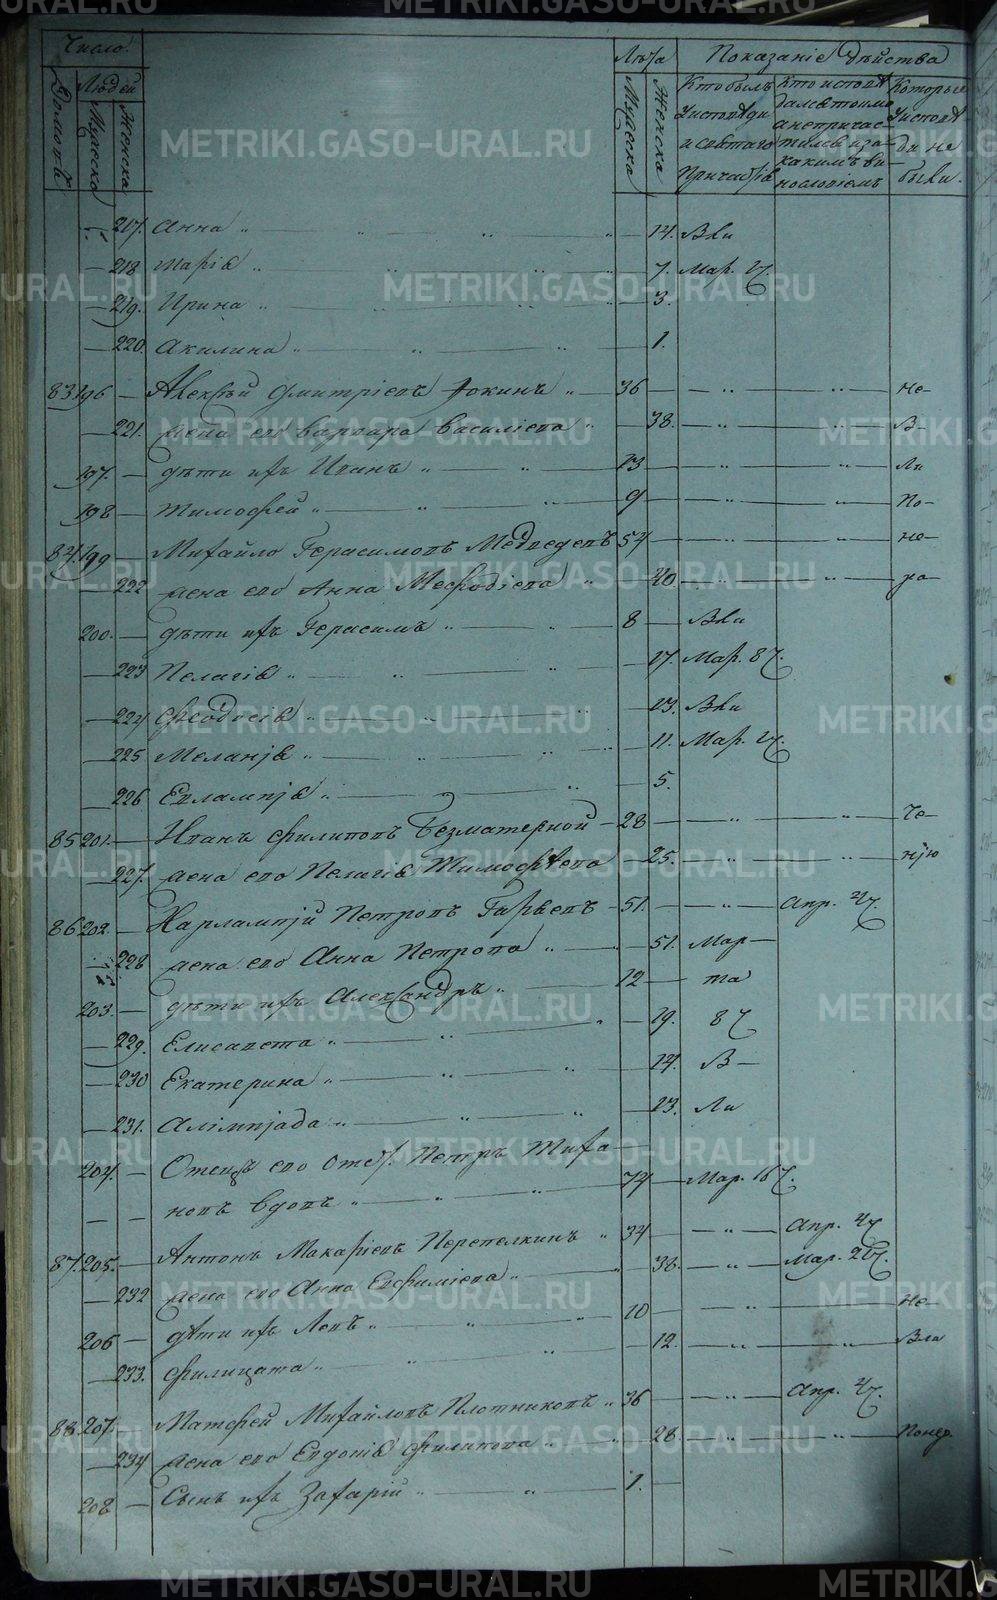 Число. Лѣта Показаніе дѣйства
Домовъ Людей Мужеска Женска Мужеска Женска
Кто былъ у исповѣди и святаго причастія
Кто исповѣдался токмо а не причастился и за какимъ винословіемъ
Которые у исповѣди не были.
217. Анна 14. Бли
218 Марія 7. Мар. 27.
219. Ирина 3.
220. Акилина 1.
83 196 — Алексѣй Дмитріевъ 36 — не-
221. жена его Варвара Василіева 38. — В-
197. — дѣти ихъ Иванъ 13 — Ли
198 — Тимофей 9 — По-
84. 199 — Михайло Герасимовъ Медведевъ 54 — не-
222 жена его Анна Мефодіева 40 — ра-
200. — дѣти ихъ Герасимъ 8
223 Пелагія 17. Мар. 8
224 Феодосія 13.
225 Меланія 11. Мар. 27.
226 Евлампія 5.
85 201. — Иванъ Филиповъ Безматерной 28 — Че-
227. жена его Пелагія Тимофѣева 25. — нію
86 202. — Харлампій Петровъ 51. — Апр.
228 жена его Анна Петрова 51. Мар-
203. — дѣти ихъ Александръ 12 — та
229. Елисавета 19. 8
230 Екатерина 14. В-
231. Алімпіада 13. Ли
204. — Отецъ его Отст. Петръ Тиха
новъ вдовъ 74 — Мар. 16
87. 205. — Антонъ Макаріевъ Перепелкинъ 34 — Апр.
232 жена его Анна Евфиміева 38. — Мар. 26
206 — дѣти ихъ Левъ 10 — не-
233. Филицата 12.
88 207. Матфей Михайловъ Плотниковъ 36 — Апр.
234 жена его Евдокія Филипова 28. — Понер.
208 — Сынъ ихъ Захарій 1.
METRIKI.GASO-URAL.RU